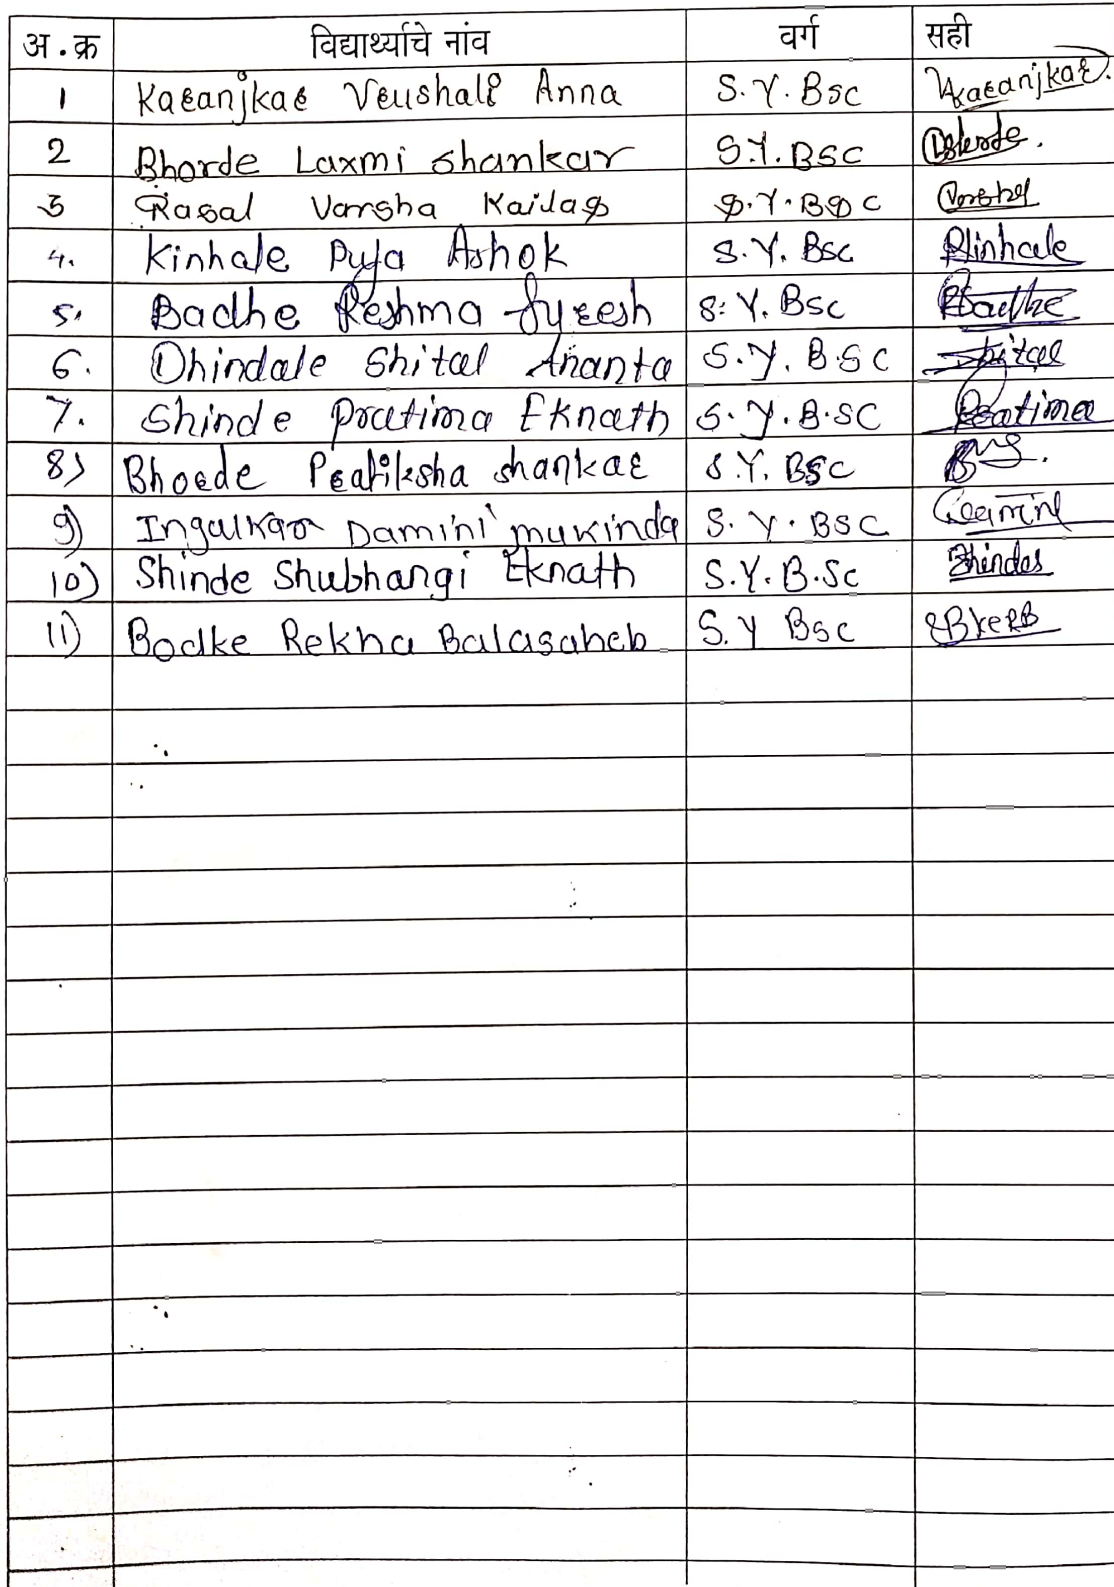 अ.क्र विद्यार्थ्याचे नांव वर्ग सही
1 Karanjkar Vrushali Anna S.Y. Bsc Vkaranjkar.
2 Bhorde Laxmi shankar S.Y. BSC
3 Rasal Varsha Kailas S.Y. BSC Varsha
4. Kinhale Puja Ashok S.Y. Bsc Pkinhale
5. Badhe Reshma Suresh S. Y. Bsc RBadhe
6. Dhindale Shital Ananta S.Y. B.SC Shital
7. Shinde Pratima Eknath S.Y. B.SC Pratima
8) Bhorde Pratiksha shankar S.Y. BSC
9) Ingalkar Damini mukinda S.Y. BSC Damini
10) Shinde Shubhangi Eknath S.Y. B.Sc Shindes
11) Bodke Rekha Balasaheb S.Y Bsc